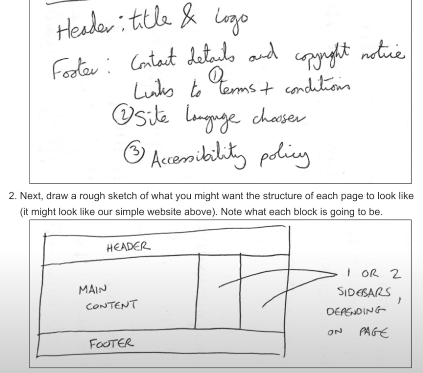 Header: title & Logo
Footer: Contact details and copyright notice
Links to ① Terms + conditions
② Site Language chooser
③ Accessibility policy
2. Next, draw a rough sketch of what you might want the structure of each page to look like
(it might look like our simple website above). Note what each block is going to be.
HEADER
MAIN
CONTENT
FOOTER
1 OR 2
SIDEBARS,
DEPENDING
ON PAGE